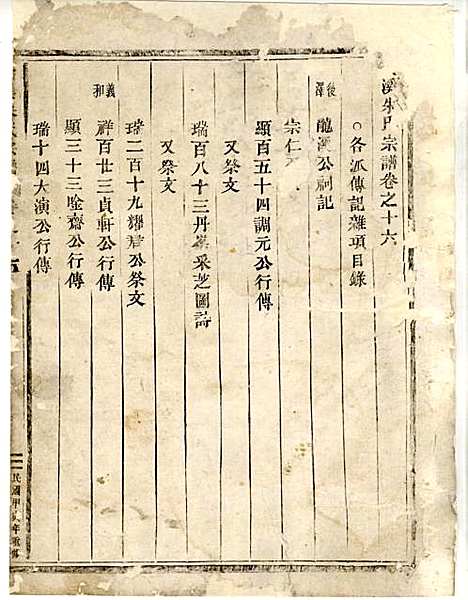 溪朱氏宗譜卷之十六
○各派傳記雜項目錄
後潭
龍溪公祠記
崇仁
顯百五十四調元公行傳
又祭文
瑞百八十三丹崖采芝圖詩
又祭文
瑞二百十九耀君公祭文
義和
祥百廿三貞軒公行傳
顯三十三唫齋公行傳
瑞十四大演公行傳
民國甲戌年重修